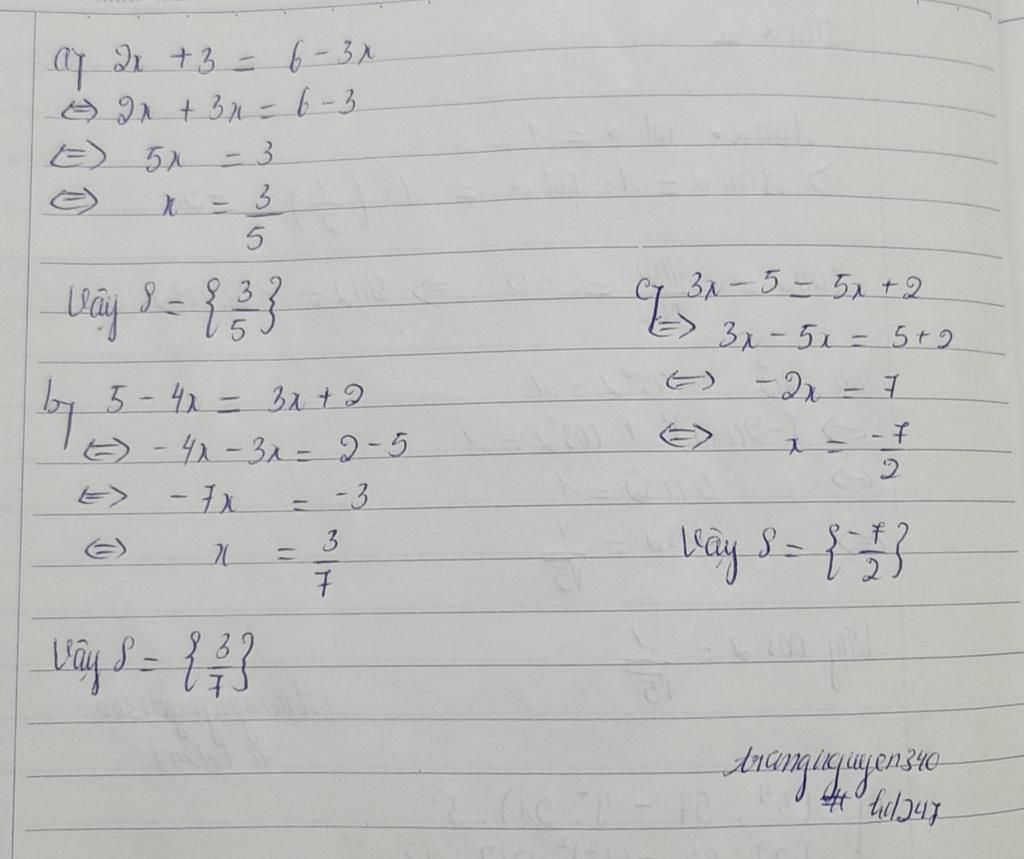 a) 2x + 3 = 6 - 3x
⇔ 2x + 3x = 6 - 3
⇔ 5x = 3
⇔ x = 3/5
Vậy S = {3/5}
b) 5 - 4x = 3x + 2
⇔ -4x - 3x = 2 - 5
⇔ -7x = -3
⇔ x = 3/7
Vậy S = {3/7}
c) 3x - 5 = 5x + 2
⇔ 3x - 5x = 5 + 2
⇔ -2x = 7
⇔ x = -7/2
Vậy S = {-7/2}
trangnguyen340
# hd247